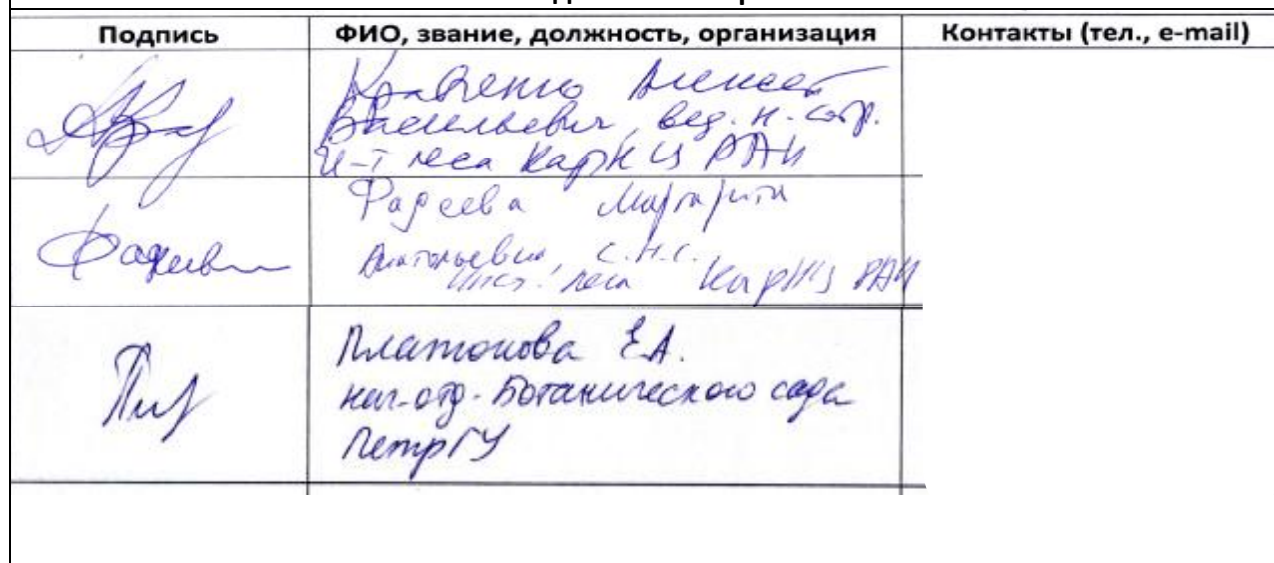 Подпись ФИО, звание, должность, организация Контакты (тел., e-mail)
Кравченко Алексей
Васильевич, вед. н. сотр.
И-т леса КарНЦ РАН
Фадеева Маргарита
Анатольевна, с.н.с.
Инст. леса КарНЦ РАН
Фадеева
Платонова Е.А.
нач. отд. Ботанического сада
ПетрГУ